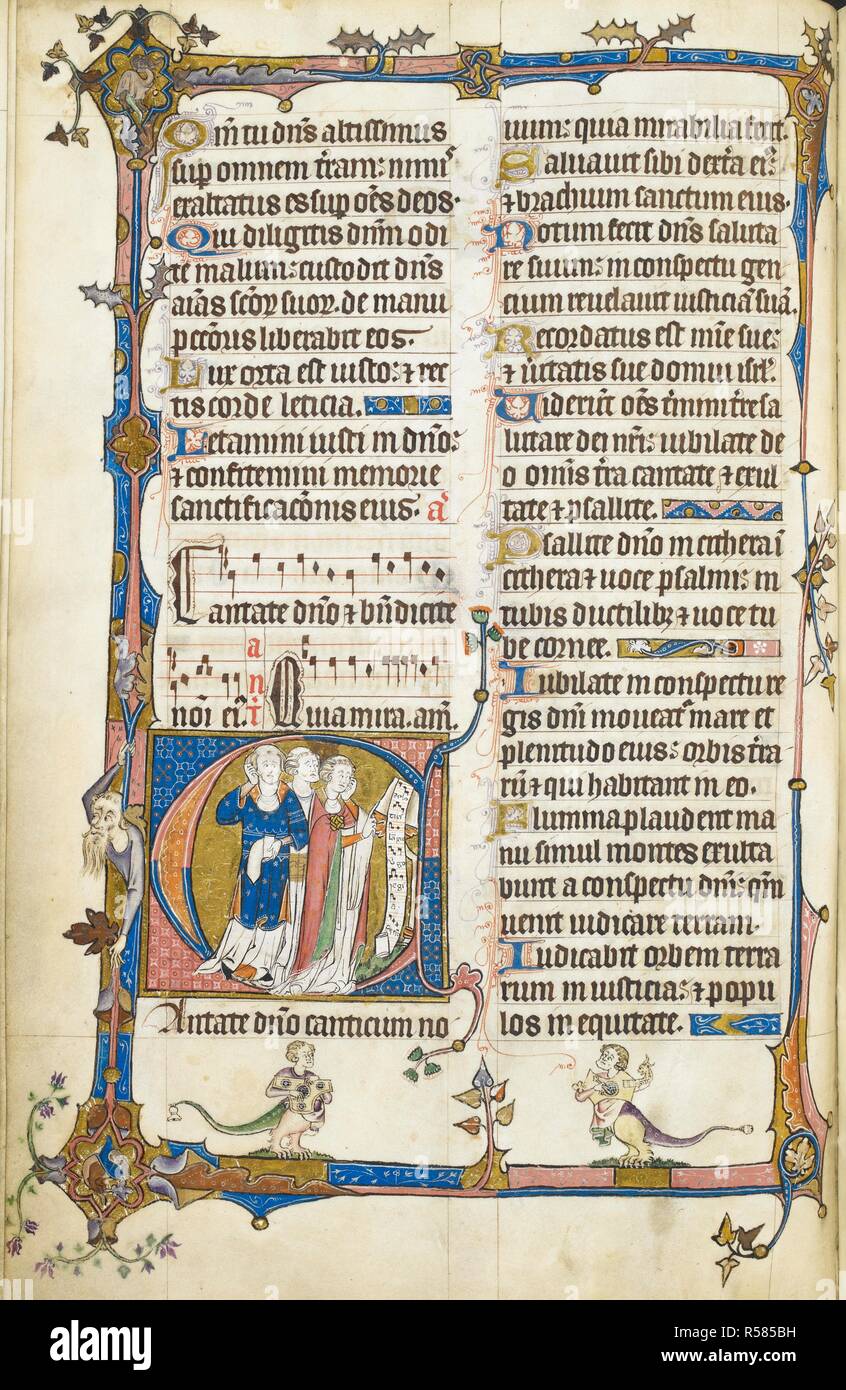 Qm̄ tu dn̄s altissimus
sup omnem t̄ram: nimis
exaltatus es sup om̄s deos.
Qui diligitis dn̄m odi
te malum: custodit dn̄s
aīas sc̄oꝝ suoꝝ. de manu
peccatoris liberabit eos.
Lux orta est iusto: ⁊ rec
tis corde leticia.
Letamini iusti in dn̄o:
⁊ confitemini memorie
sanctificac̄onis eius. a
Cantate dn̄o ⁊ bn̄dicite
nōi ei. ani Quia mira. am̄.
Antate dn̄o canticum no
uum: quia mirabilia fecit.
Saluauit sibi dext̄a ei:
⁊ brachium sanctum eius.
Notum fecit dn̄s saluta
re suum: in conspectu gen
cium reuelauit iusticiā suā.
Recordatus est mīe sue:
⁊ ūitatis sue domui isrl̄.
Uiderūt om̄s t̄mini t̄re sa
lutare dei nr̄i: iubilate de
o omnis t̄ra cantate ⁊ exul
tate ⁊ psallite.
Psallite dn̄o in cithera ī
cithera ⁊ uoce psalmi: in
tubis ductilibꝫ ⁊ uoce tu
be cornee.
Iubilate in conspectu re
gis dn̄i moueat̄ mare et
plenitudo eius: orbis t̄ra
rū ⁊ qui habitant in eo.
Flumina plaudent ma
nu simul montes exulta
bunt a conspectu dn̄i: qm̄
uenit iudicare terram.
Iudicabit orbem terra
rum in iusticia: ⁊ popu
los in equitate.
alamy
Image ID: R585BH
www.alamy.com